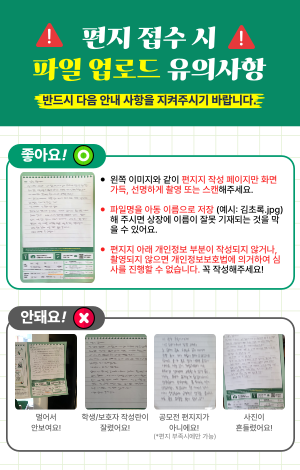 편지 접수 시
파일 업로드 유의사항
반드시 다음 안내 사항을 지켜주시기 바랍니다.
좋아요!
왼쪽 이미지와 같이 편지지 작성 페이지만 화면
가득, 선명하게 촬영 또는 스캔해주세요.
파일명을 아동 이름으로 저장 (예시: 김초록.jpg)
해 주시면 상장에 이름이 잘못 기재되는 것을 막
을 수 있어요.
편지지 아래 개인정보 부분이 작성되지 않거나,
촬영되지 않으면 개인정보보호법에 의거하여 심
사를 진행할 수 없습니다. 꼭 작성해주세요!
안돼요!
멀어서
안보여요!
학생/보호자 작성란이
잘렸어요!
공모전 편지지가
아니에요!
(*편지 부족시에만 가능)
사진이
흔들렸어요!